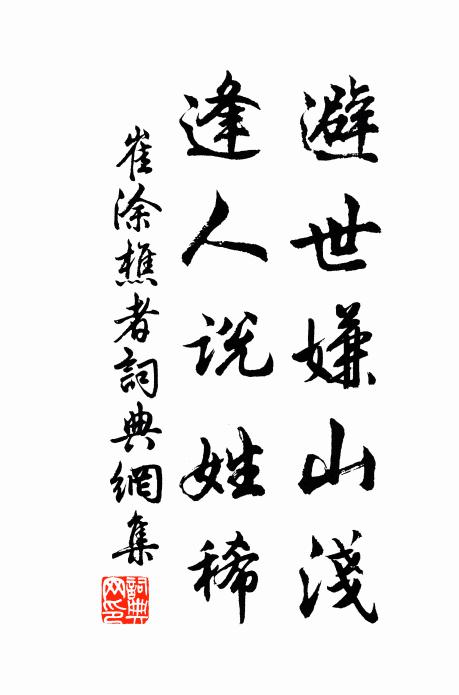 避世嫌山淺
逢人説姓稀
崔涂樵者詞典網集
詞典网印